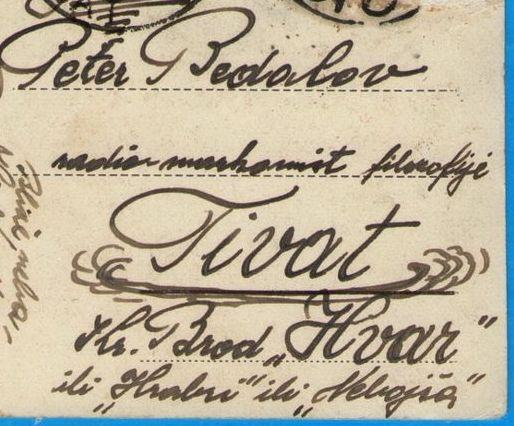 Peter Bedalov
radio-mechanist filozofije
Tivat
Kr. Brod „Hvar"
ili „Hrabri" ili „Nebojša"